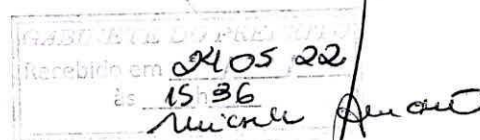 GABINETE DO PREFEITO
Recebido em 24 05 22
às 15 36